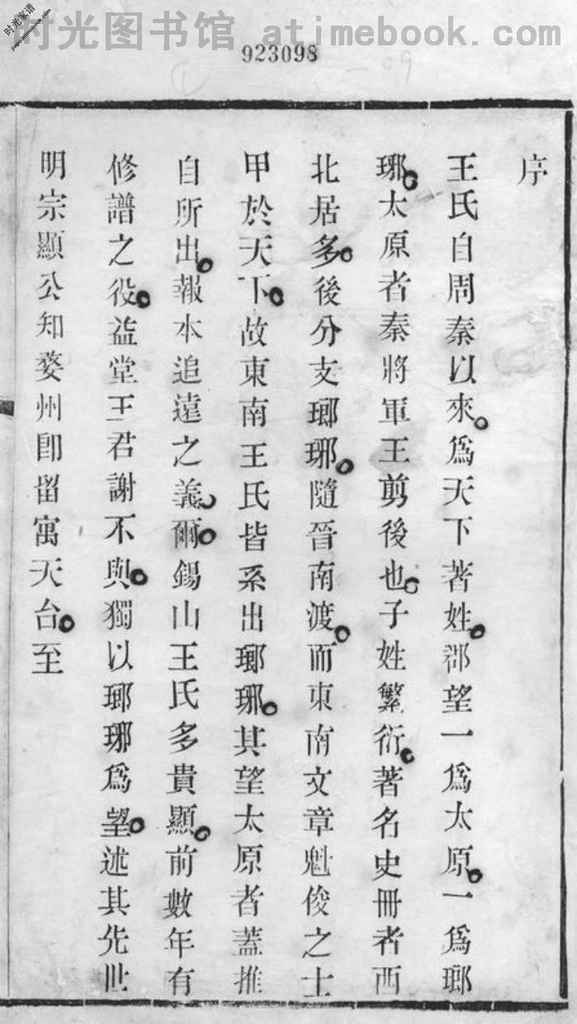 时光家谱
时光图书馆 atimebook.com
923098
序
王氏自周秦以來為天下著姓郡望一為太原一為瑯
琊太原者秦將軍王剪後也子姓繁衍著名史冊者西
北居多後分支瑯琊隨晉南渡而東南文章魁俊之士
甲於天下故東南王氏皆系出瑯琊其望太原者蓋推
自所出報本追遠之義爾錫山王氏多貴顯前數年有
修譜之役益堂王君謝不與獨以瑯琊為望述其先世
明宗顯公知婺州卽留寓天台至